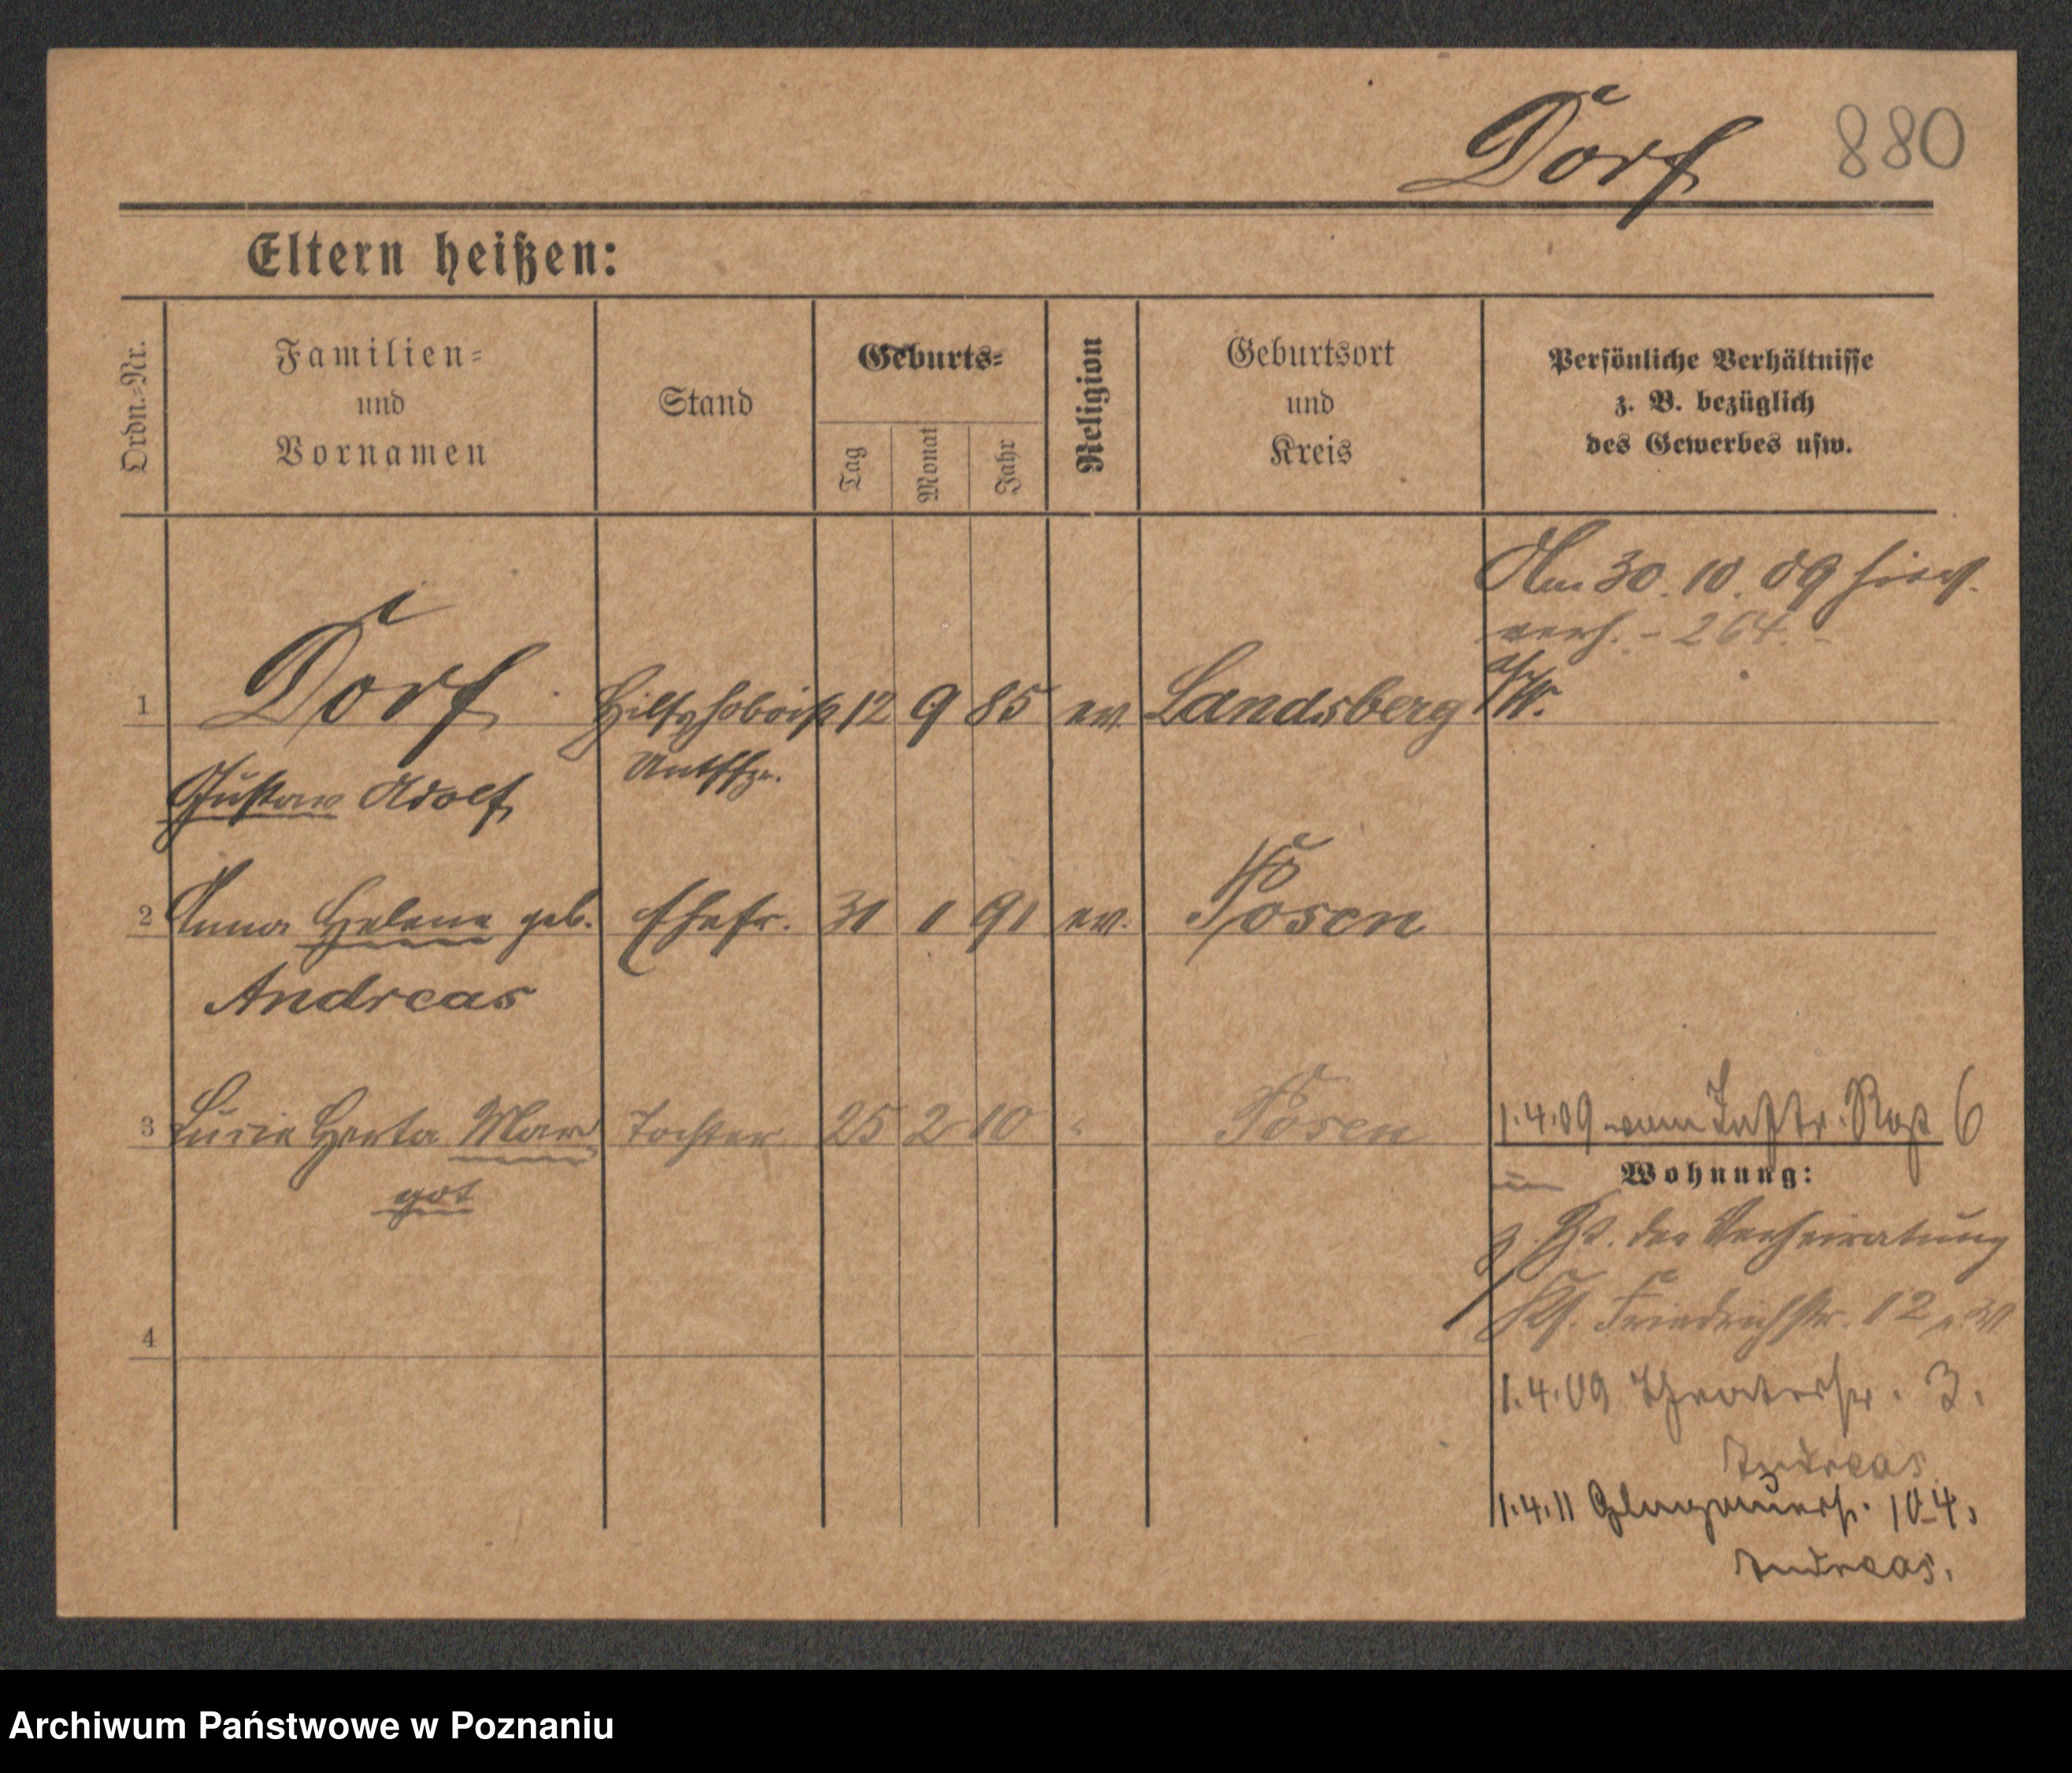 Dorf 880
Eltern heißen:
Ordn.=Nr.
Familien=
und
Vornamen
Stand
Geburts=
Tag
Monat
Jahr
Religion
Geburtsort
und
Kreis
Persönliche Verhältnisse
z. B. bezüglich
des Gewerbes usw.
Am 30. 10. 09 hier
verh. - 264. -
1 Dorf Hilfshoboist 12 9 85 ev. Landsberg a/W.
Untffz.
Gustav Adolf
2 Anna Helene geb. Ehefr. 31 1 91 ev. Posen
Andreas
3 Lucie Herta Mar Tochter 25 2 10 " Posen
got
1.4.09 6
Wohnung:
z. Zt. der Verheiratung
Friedrichstr. 12
4
1.4.09 Theaterstr. 3.
Andreas
1.4.11 Glogauerst. 104.
Andreas.
Archiwum Państwowe w Poznaniu